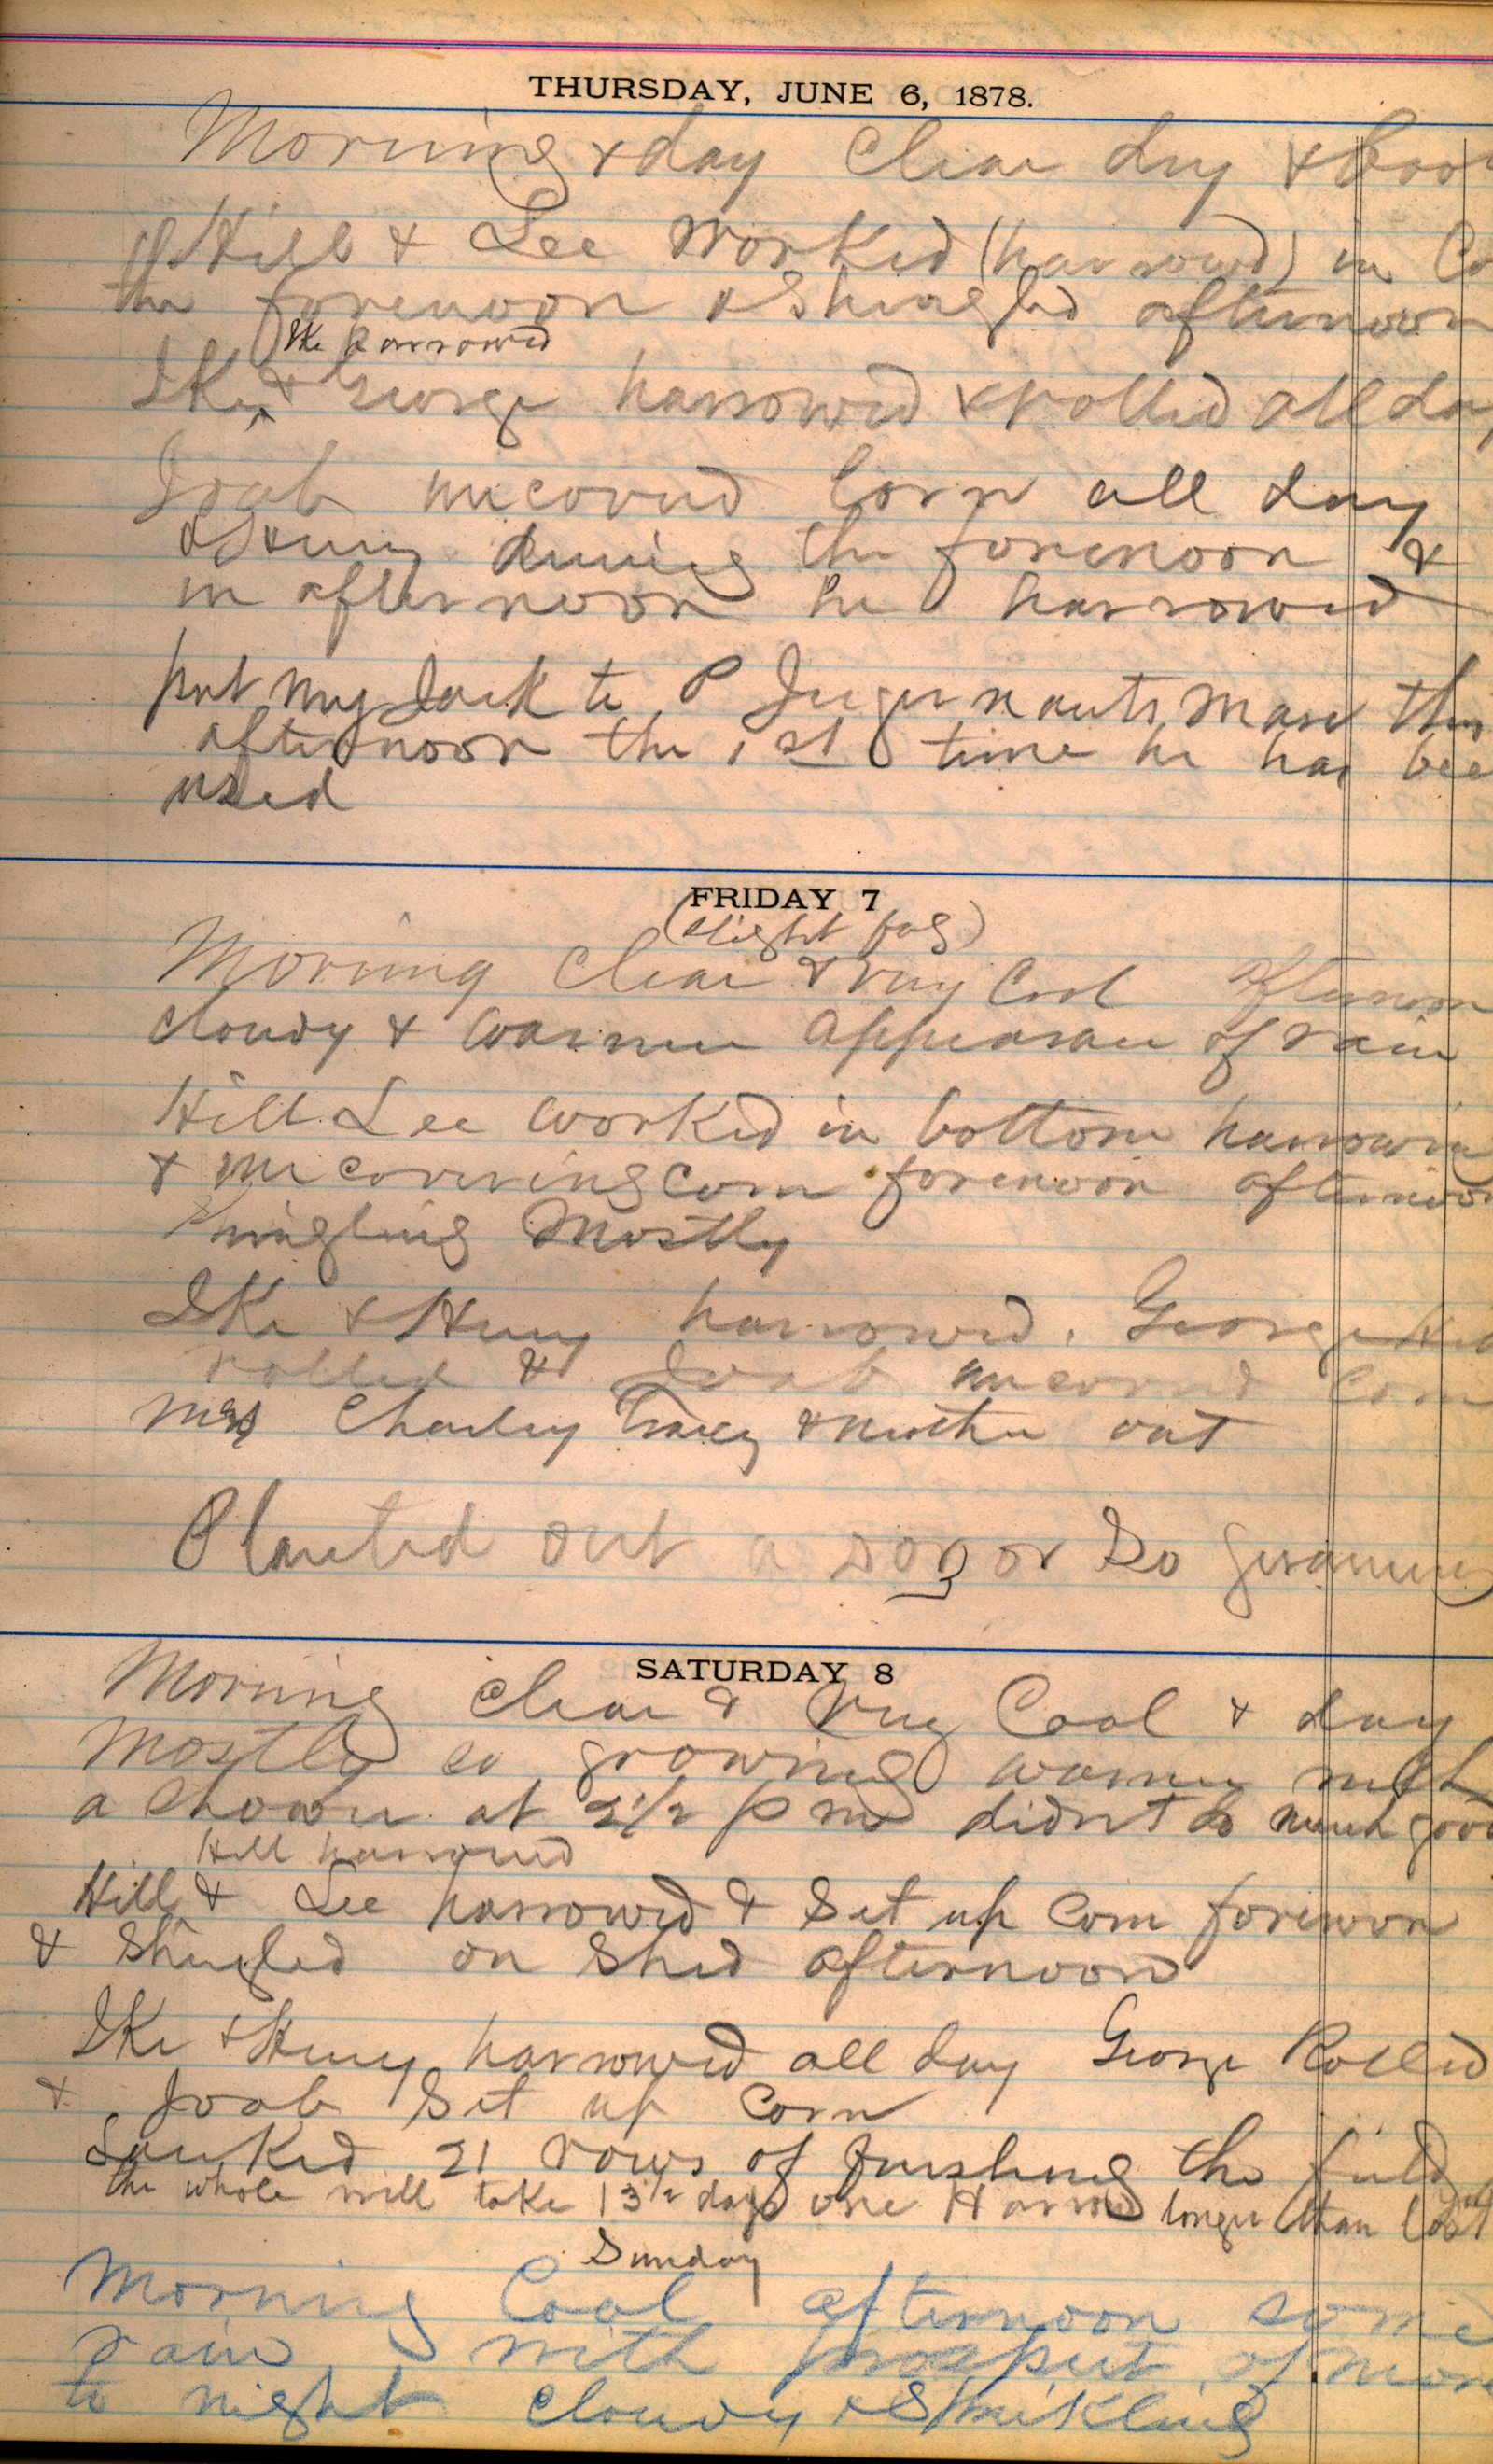 THURSDAY, JUNE 6, 1878.
Morning & day Clear dry & Cool
Hill & Lee worked (harrowed) in Co
the forenoon & Shingled afternoon
Ike harrowed
Ike & George harrowed & rolled all day
Joab uncovered Corn all day
& Henry during the forenoon &
in afternoon he harrowed
put my Jack to P mare this
afternoon the 1st time he has bee
used
FRIDAY 7
(slight fog)
Morning Clear & very Cool afternoon
cloudy & warmer appearance of rain
Hill Lee worked in bottom harrowin
& uncovering corn forenoon afternoon
Shingling Mostly
Ike & Henry harrowed. George
rolled & Joab uncovered corn
Mrs Charley Tracy & mother out
Planted out a doz or so geraniums
SATURDAY 8
Morning clear & very Cool & day
mostly so growing warmer with
a shower at 2 1/2 p m didn't do much good
Hill harrowed
Hill & Lee harrowed & Set up Corn forenoon
& Shingled on Shed afternoon
Ike & Henry harrowed all day George Rolled
& Joab Set up Corn
Lacked 21 rows of finishing the field
the whole will take 13 1/2 days one Harrow longer than last
Sunday
Morning Cool afternoon some
rain with prospect of more
to night cloudy & Sprinkling